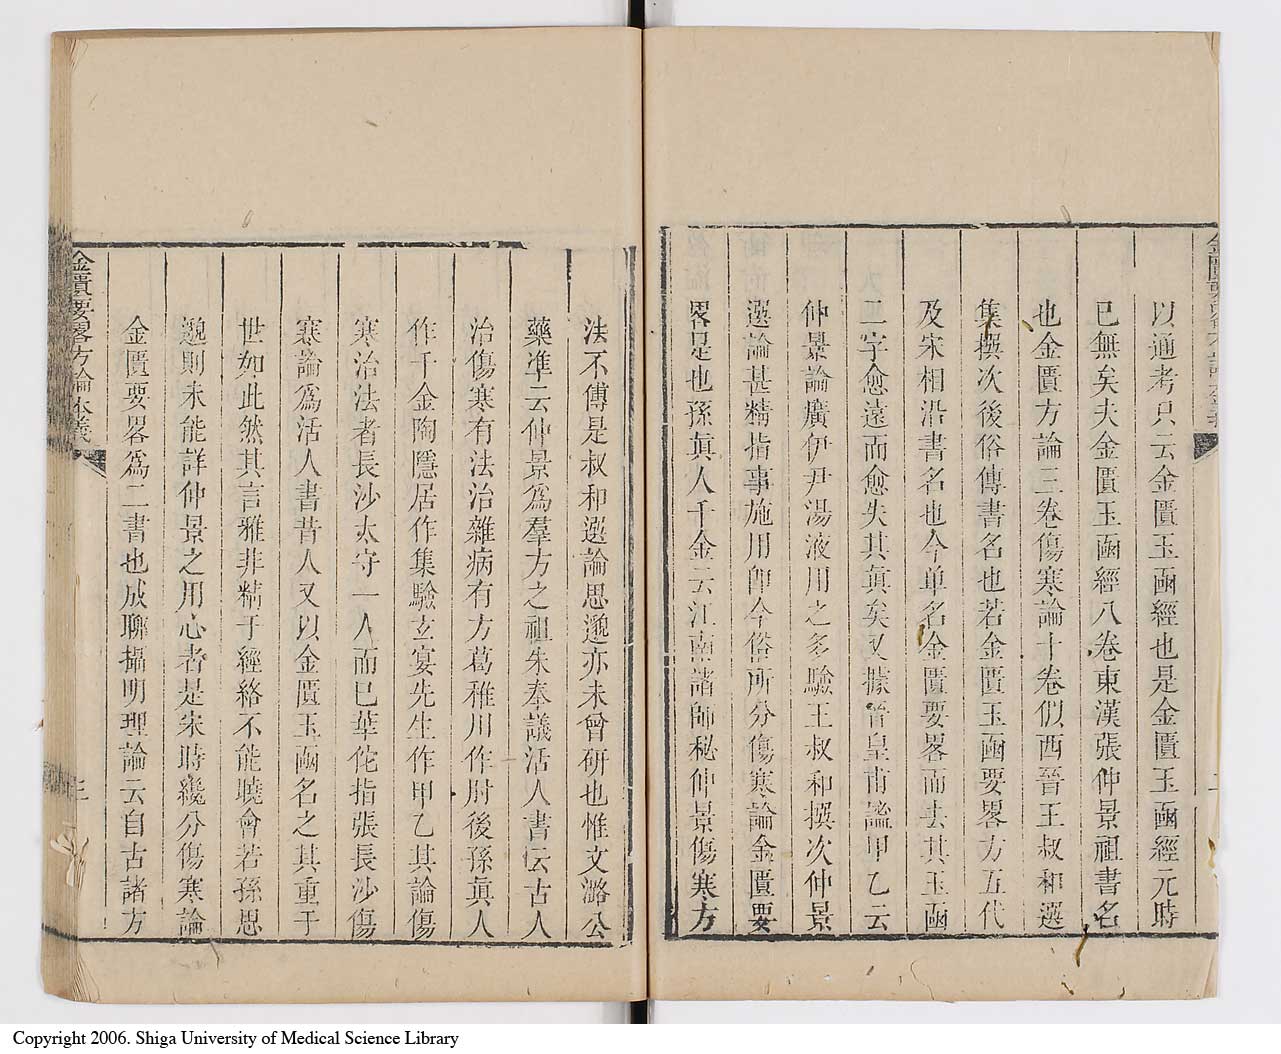 以通考只云金匱玉函經也是金匱玉函經元時
已無矣夫金匱玉函經八卷東漢張仲景祖書名
也金匱方論三卷傷寒論十卷似西晉王叔和選
集撰次後俗傳書名也若金匱玉函要畧方五代
及宋相沿書名也今单名金匱要畧而去其玉函
二字愈遠而愈失其眞矣又據晉皇甫謐甲乙云
仲景論廣伊尹湯液用之多驗王叔和撰次仲景
選論甚精指事施用卽今俗所分傷寒論金匱要
畧是也孫眞人千金云江南諸師秘仲景傷寒方
法不傳是叔和選論思邈亦未曾研也惟文潞公
藥凖云仲景爲羣方之祖朱奉議活人書伝古人
治傷寒有法治雜病有方葛稚川作肘後孫眞人
作千金陶隱居作集驗玄宴先生作甲乙其論傷
寒治法者長沙太守一人而已華佗指張長沙傷
寒論爲活人書昔人又以金匱玉函名之其重于
世如此然其言雅非精于經絡不能曉會若孫思
邈則未能詳仲景之用心者是宋時纔分傷寒論
金匱要畧爲二書也成聊攝明理論云自古諸方
金匱要畧方論本義
三
Copyright 2006. Shiga University of Medical Science Library